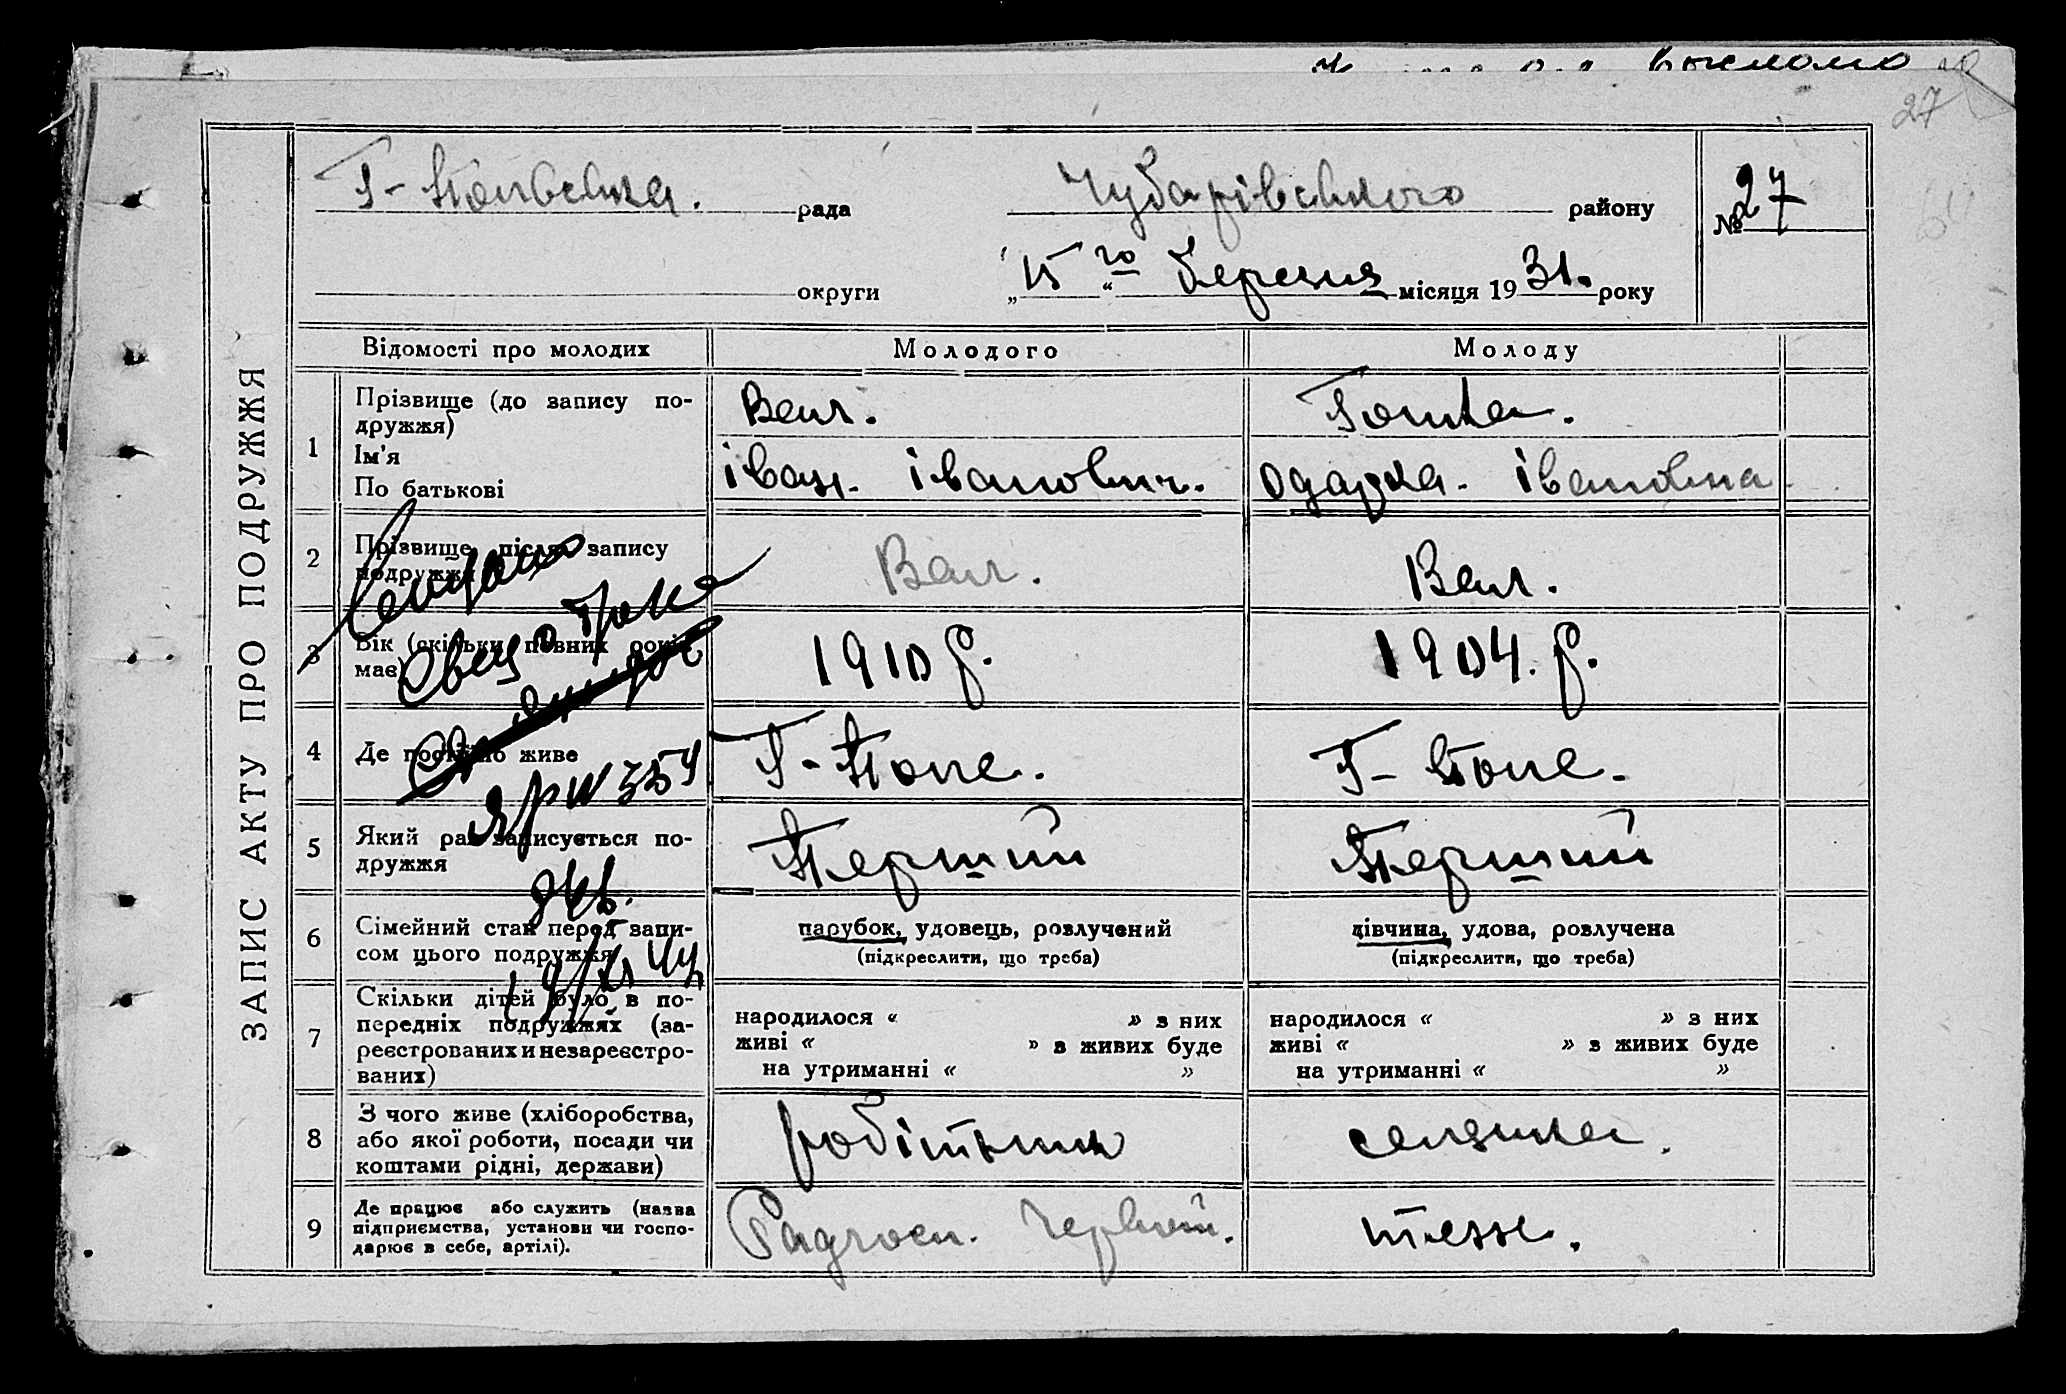 27
Г-Пільська. рада
Чубарівського району
№ 27
округи
„15го“ березня місяця 1931. року
ЗАПИС АКТУ ПРО ПОДРУЖЖЯ
Відомості про молодих
Молодого
Молоду
1
Прізвище (до запису по-
дружжя)
Ім'я
По батькові
Вач.
іван. іванович.
Гонта.
Одарка. івановна
2
Прізвище після запису
подружжя
Вач.
Вач.
3
Вік (скільки повних років
має)
1910 р.
1904. р.
4
Де постійно живе
Г-Поле.
Г-Поле.
5
Який раз записується по-
дружжя
Перший
Перший
6
Сімейний стан перед запи-
сом цього подружжя
парубок, удовець, розлучений
(підкреслити, що треба)
дівчина, удова, розлучена
(підкреслити, що треба)
7
Скільки дітей було в по-
передніх подружжях (за-
реєстрованих и незареєстро-
ваних)
народилося « » з них
живі « » з живих буде
на утриманні « »
народилося « » з них
живі « » з живих буде
на утриманні « »
8
З чого живе (хліборобства,
або якої роботи, посади чи
коштами рідні, держави)
робітник
селянка.
9
Де працює або служить (назва
підприємства, установи чи госпо-
дарює в себе, артілі).
Радгосп. Червоний.
теж.